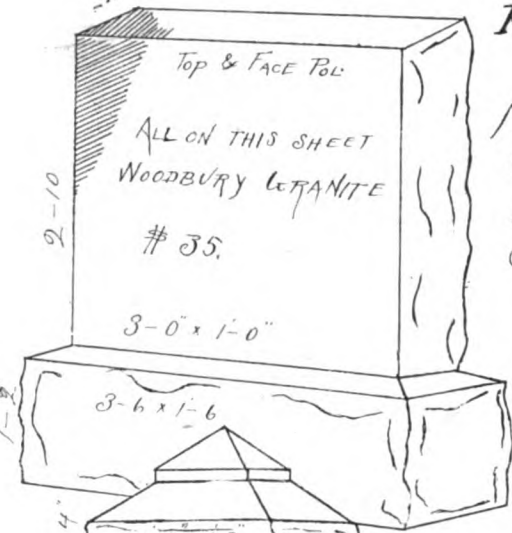 Top & Face Pol.
All on this sheet
Woodbury Granite
# 35.
2-10
3-0" x 1-0"
3-6 x 1-6
4"